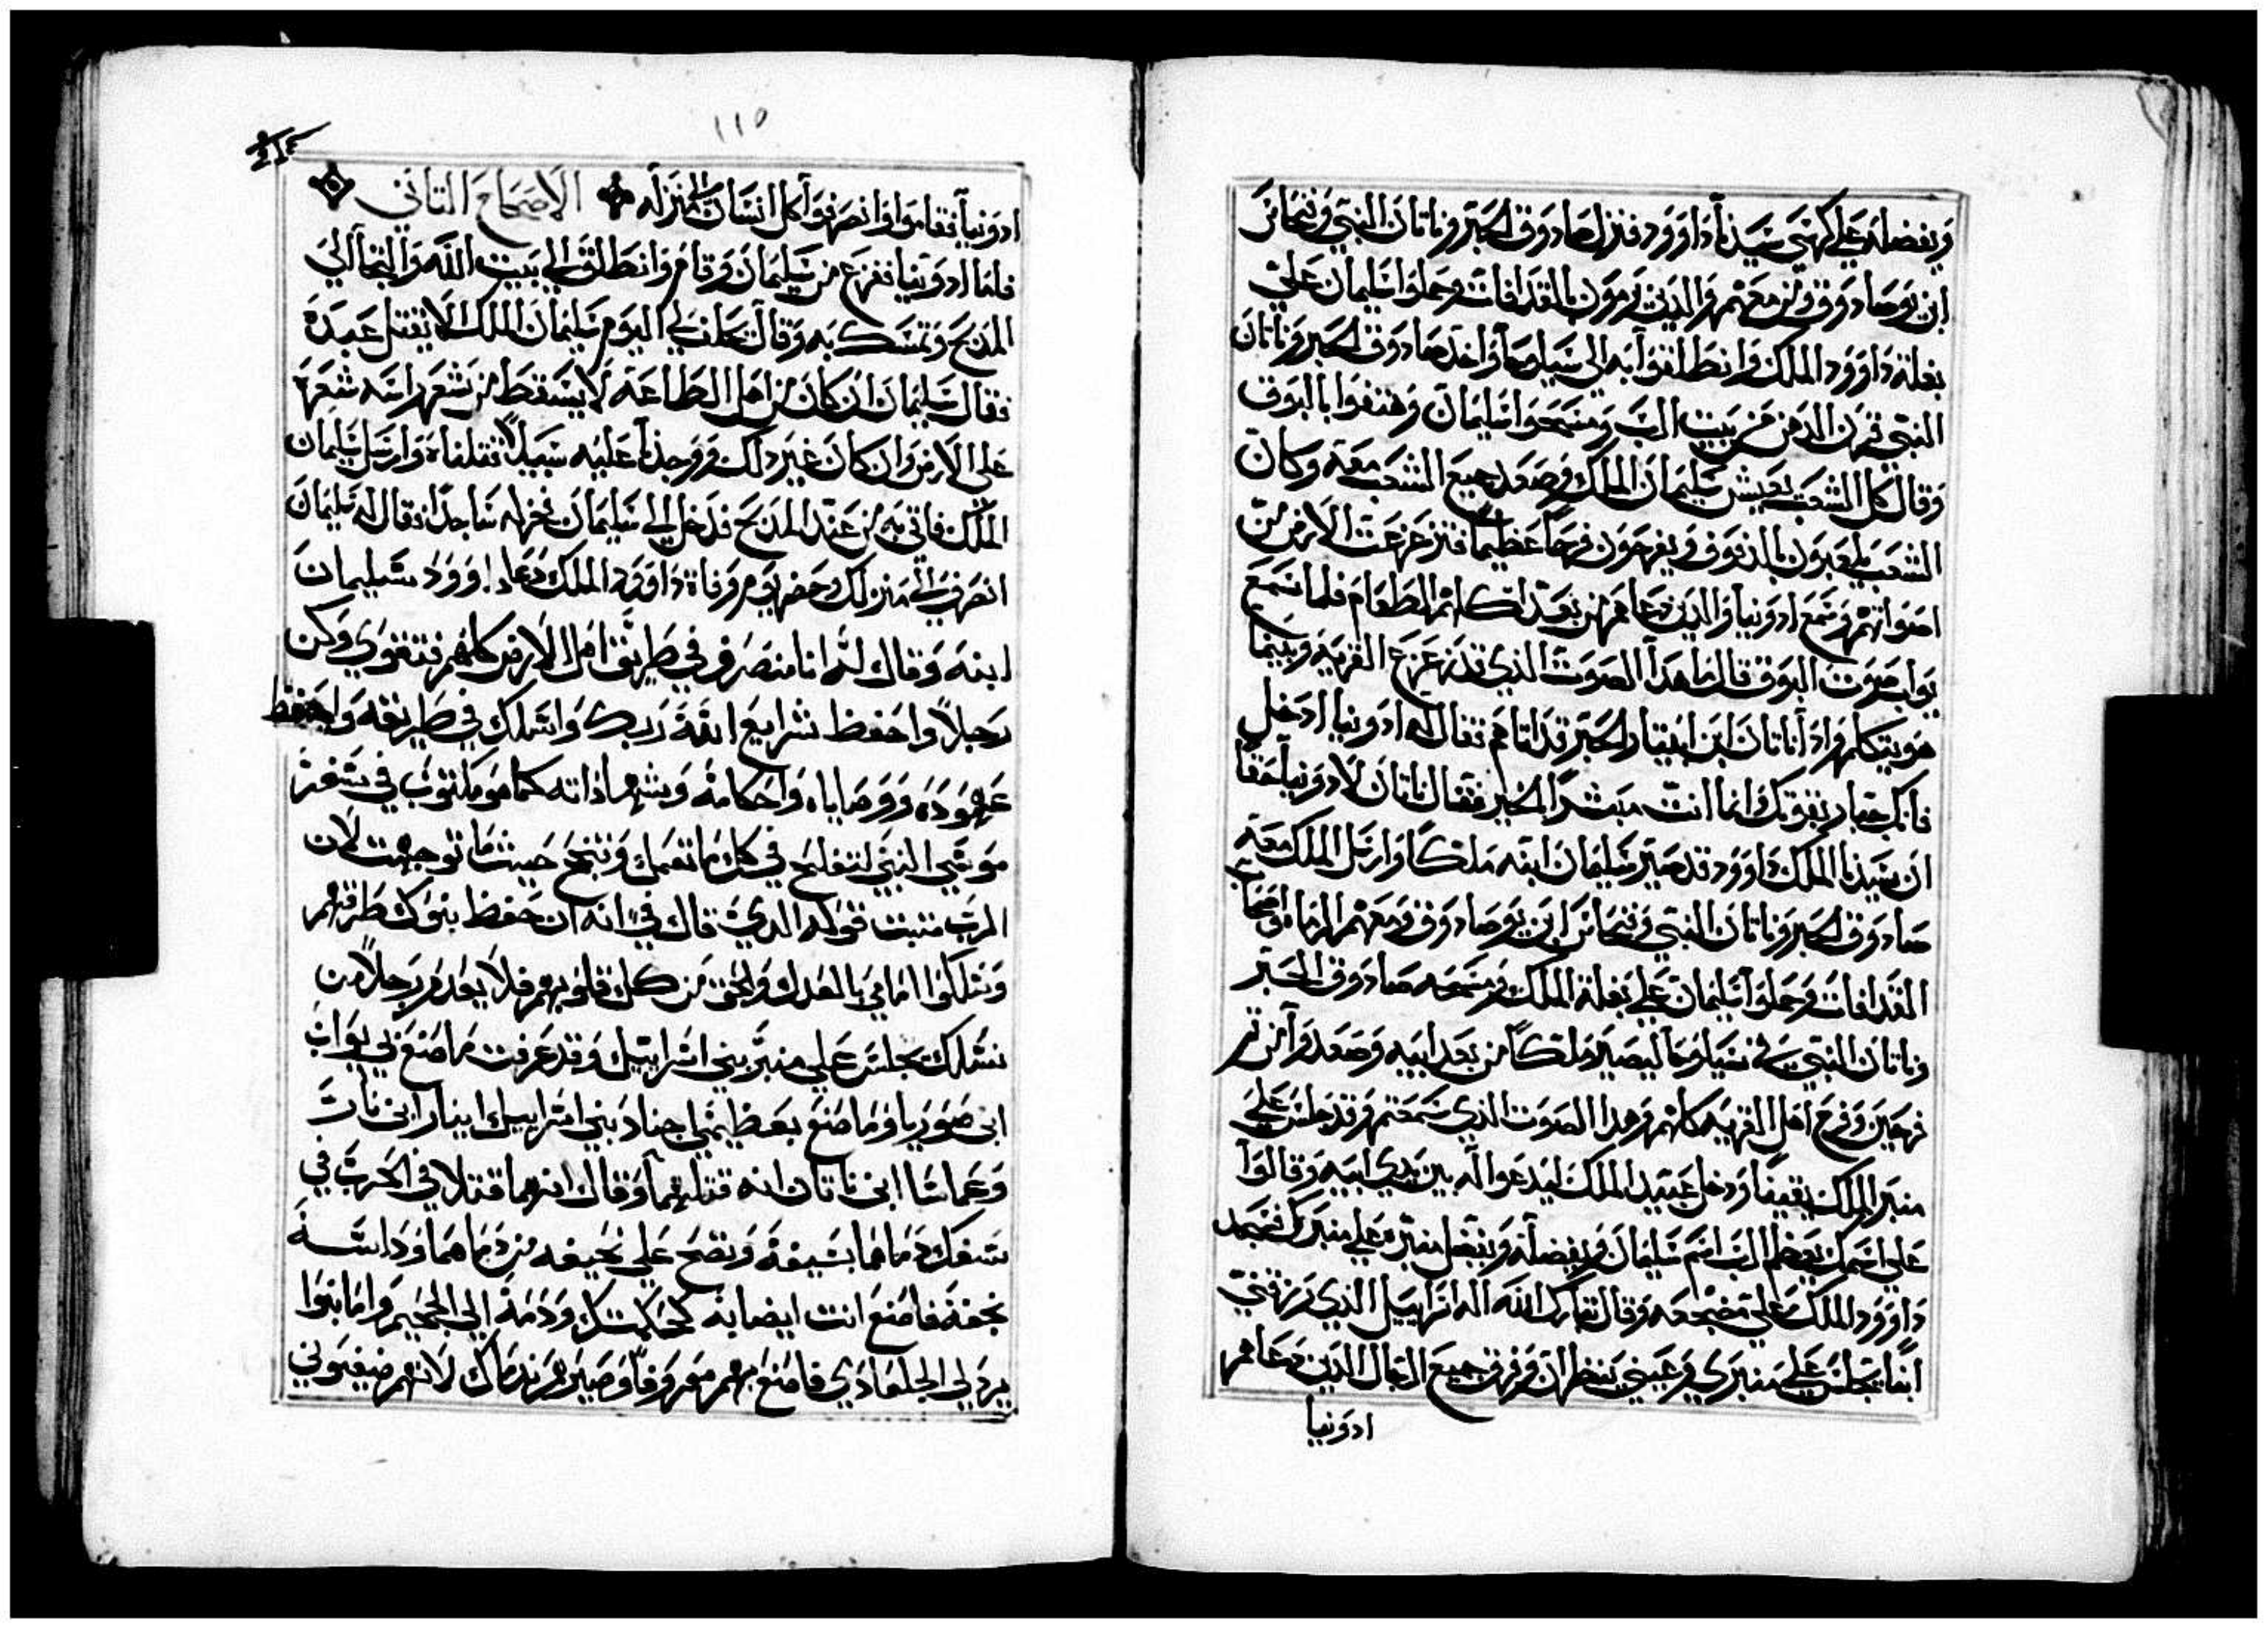 ويفضله علي كهنتي سيدنا داوود فنزل صادوق الحبر وناتان النبي وفنحاس
ابن يوصادوق ومن معهم والدين يرمون بالمقدافات وحملوا سليمان علي
بغلة داوود الملك وانطلقوا به الي سيلوحا واخد صادوق الحبر وناتان
النبي قرن الدهن من بيت الرب ومسحوا سليمان وهتفوا بالبوق
وقال كل الشعب يعيش سليمان الملك وصعد جميع الشعب معه وكان
الشعب يلعبون بالدفوف ويفرحون فرحا عظيما فتزعزعت الارض من
اصواتهم وسمع ادونيا والدين دعاهم من بعد اكلهم الطعام فلما سمع
يواب صوت البوق قال ما هدا الصوت الذي قد زعزع القريه وبينما
هو يتكلم وادا ناتان ابن ابيتار الحبر قد اتاهم فقال له ادونيا ادخل
فانك جبار بقوتك انما انت مبشرا بالخير فقال ناتان لادونيا حقا
ان سيدنا الملك داوود قد صير سليمان ابنه ملكا وارسل الملك معه
صادوق الحبر وناتان النبي وفنحاس ابن يوصادوق ومعهم الرماه واصحاب
المقدافات وحملوا سليمان علي بغلة الملك ومسحه صادوق الحبر
وناتان النبي في سيلوحا ليصير ملكا من بعد ابيه وصعدوا من تم
فرحين وفرح اهل القريه كلهم وهدا الصوت الذي سمعتم وقد جلس علي
منبر الملك يقينا ودخل عبيد الملك ليدعوا له بين يدي ابيه وقالوا
علي اسمك يعظم الرب اسم سليمان ويفضله ويجعل منبره علي منبرك فسجد
داوود الملك علي مضجعه وقال تبارك الله اله اسراييل الذي رزقني
ابنا يجلس علي منبري وعيني ينظران وفرق جميع الرجال الدين دعاهم
ادونيا
١١٥
ادونيا فقاموا وانصرفوا كل انسان الي منزله الاصحاح التاني
فاما ادونيا ففزع من سليمان وقام وانطلق الي بيت الله والتجا الي
المدبح وتمسك به وقال يحلف لي اليوم سليمان الملك الا يقتل عبده
فقال سليمان ان كان من اهل الطاعه لا يسقط من شعر راسه شعره
علي الارض وان كان غير دلك ووجدنا عليه سبيلا قتلناه وارسل سليمان
الملك فاتي به من عند المدبح فدخل الي سليمان فخر له ساجدا فقال له سليمان
انصرف الي منزلك وحضر يوم وفاة داوود الملك دعا داوود سليمان
ابنه وقال له انا منصرف في طريق اهل الارض كلهم فتقوي وكن
رجلا واحفظ شرايع الله ربك واسلك في طريقه واحفظ
عهوده ووصاياه واحكامه وشهاداته كما هو مكتوب في سفر
موسي النبي لتفلح في كل ما تعمل وتنجح حيث ما توجهت لان
الرب متبت قوله الدي قال في انه ان حفظ بنوك طرقهم
وسلكوا امامي بالعدل والحق من كل قلوبهم فلا يعدم رجلا من
نسلك يجلس علي منبر بني اسراييل وقد عرفت ما صنع بي يواب
ابن صوريا وما صنع بعظيمي اجناد بني اسراييل ابينار ابن نار
وعماسا ابن ناتان انه قتلهما وقال انهما قتلا في الحرب في
سفك دماهما بسيفه ونضح علي نحيفه من دماهما وداسه
بخفه فاصنع انت ايضا به كحكمتك ودمه الي الجحيم واما بنوا
برزلي الجلعادي فاصنع بهم معروفا وصيرهم ندماك لانهم ضيفوني